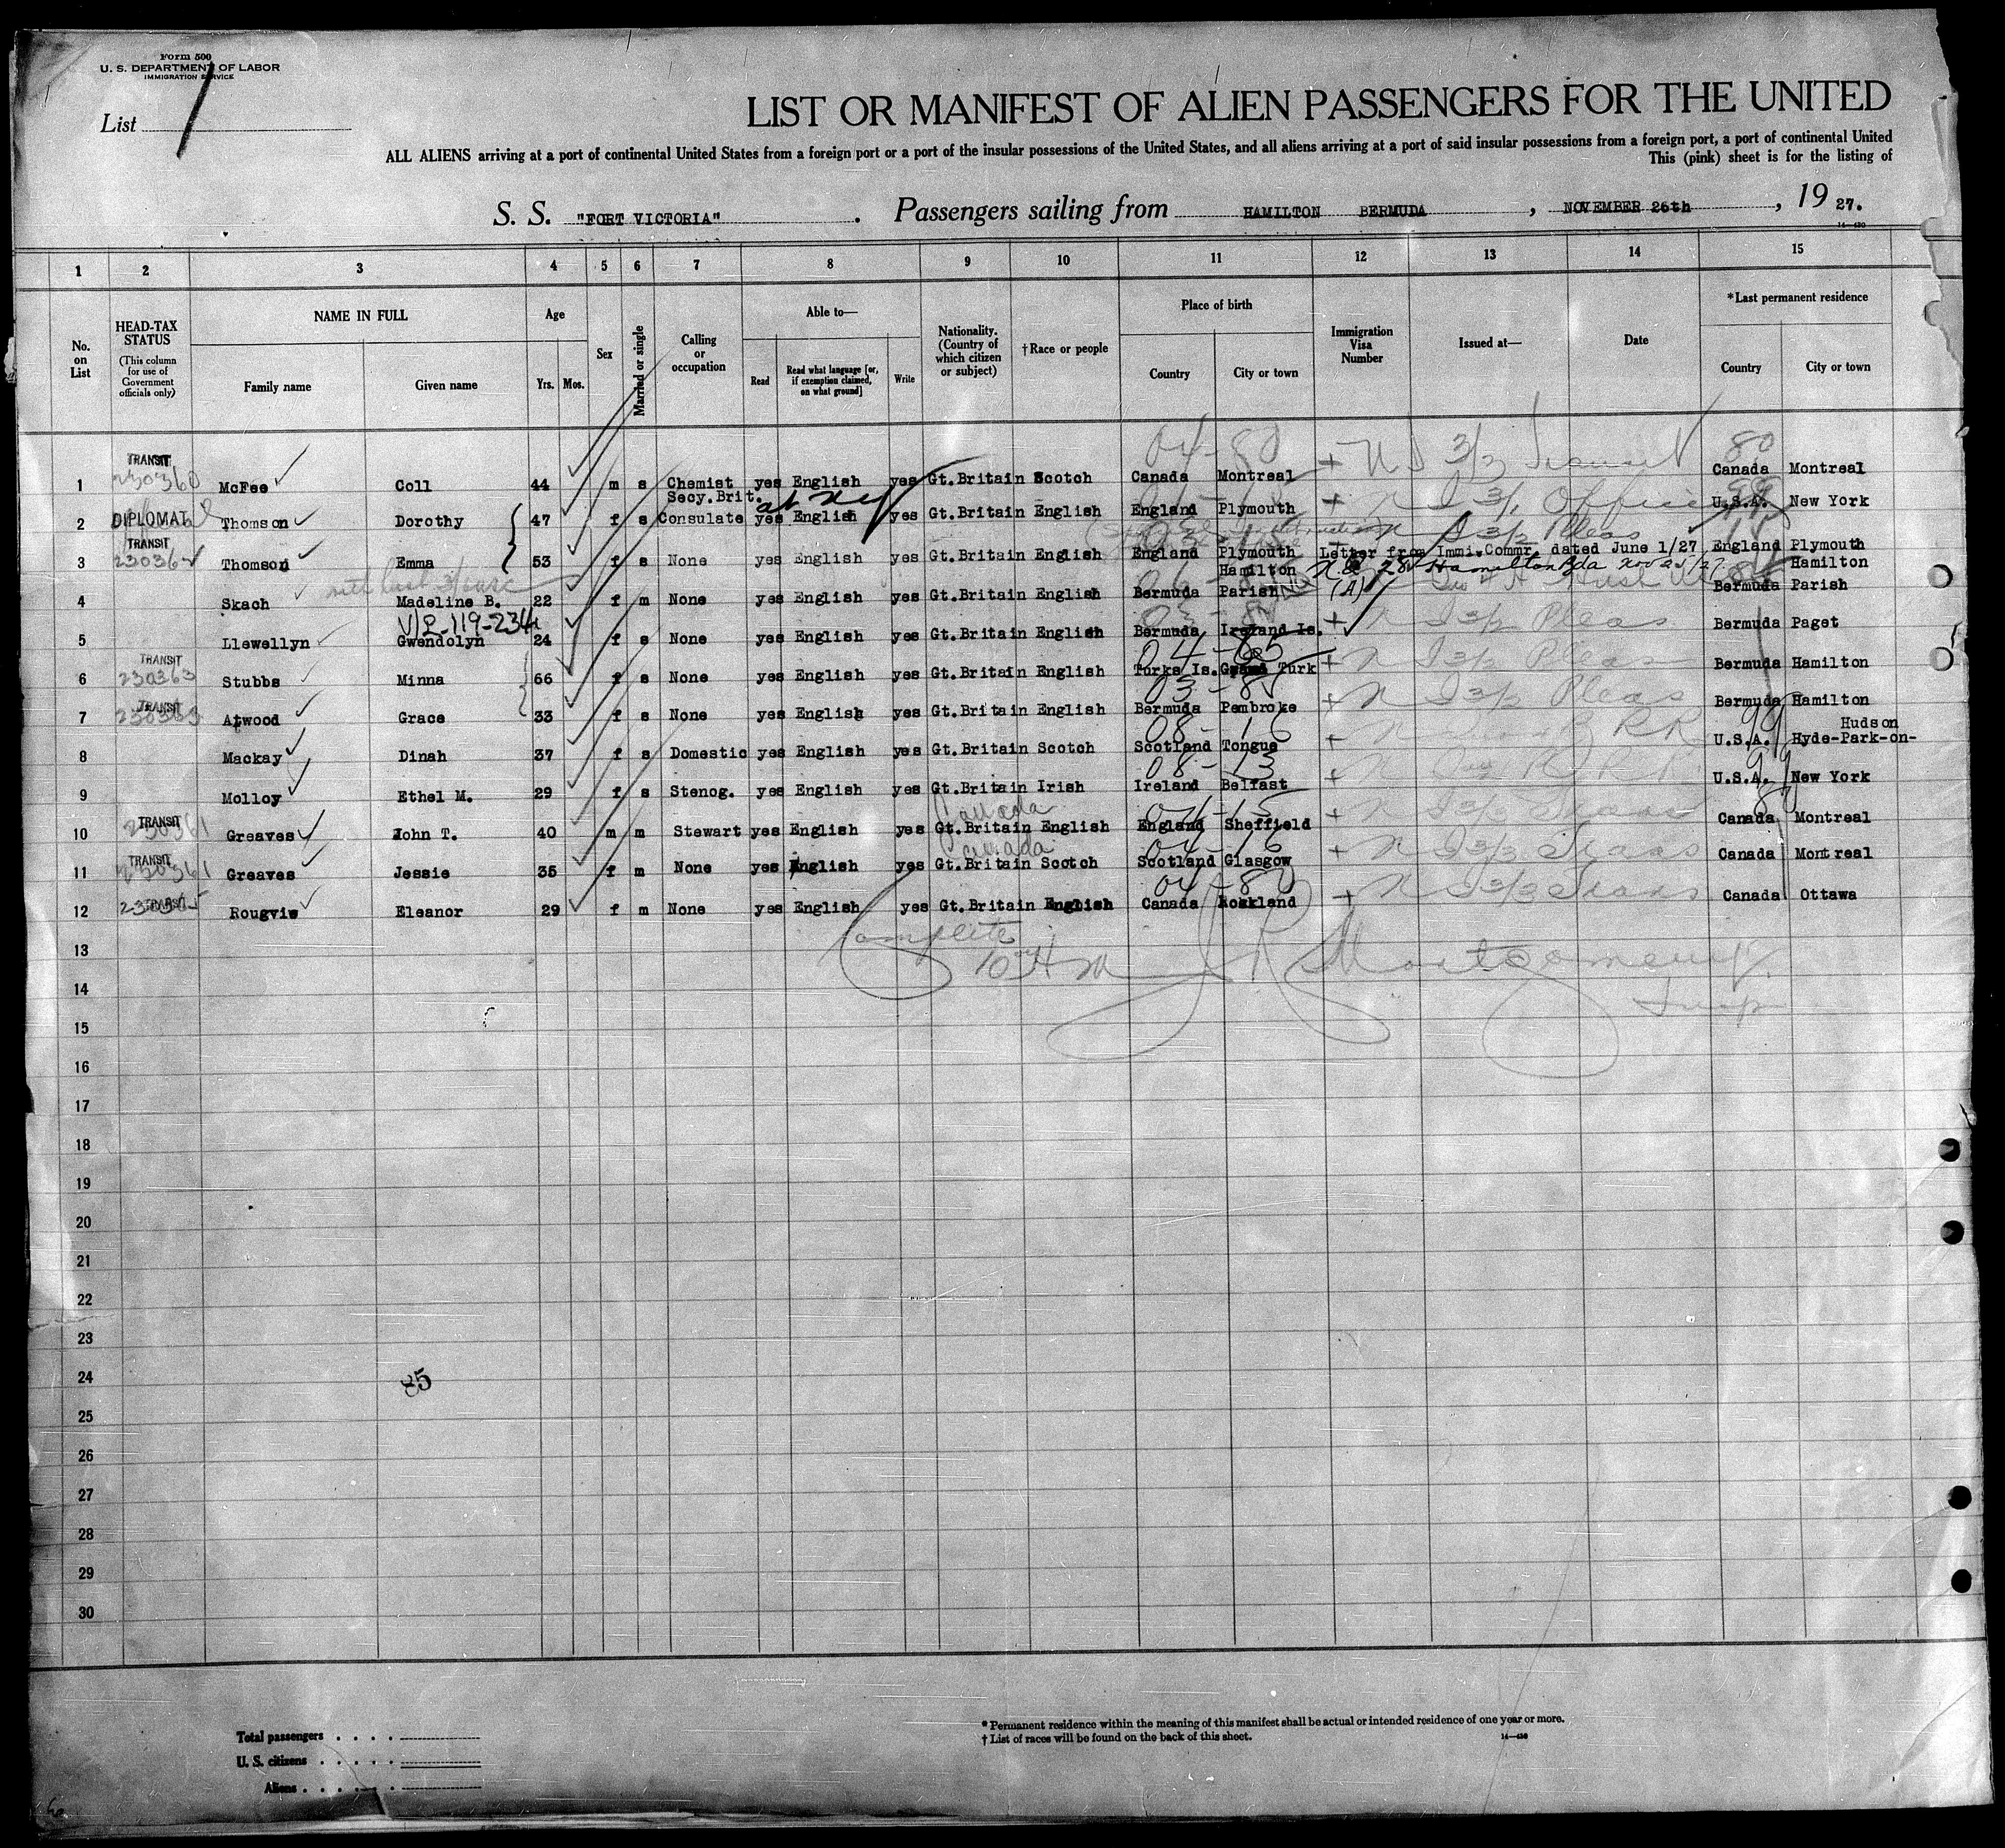 Form 500
U. S. DEPARTMENT OF LABOR
IMMIGRATION SERVICE
List
LIST OR MANIFEST OF ALIEN PASSENGERS FOR THE UNITED
ALL ALIENS arriving at a port of continental United States from a foreign port or a port of the insular possessions of the United States, and all aliens arriving at a port of said insular possessions from a foreign port, a port of continental United
This (pink) sheet is for the listing of
S. S. "FORT VICTORIA". Passengers sailing from HAMILTON BERMUDA, NOVEMBER 26th, 1927.
1 2 3 4 5 6 7 8 9 10 11 12 13 14 15
No. on List
HEAD-TAX STATUS (This column for use of Government officials only)
NAME IN FULL Family name Given name
Age Yrs. Mos.
Sex
Married or single
Calling or occupation
Able to— Read Read what language [or, if exemption claimed, on what ground] Write
Nationality. (Country of which citizen or subject)
†Race or people
Place of birth Country City or town
Immigration Visa Number
Issued at—
Date
*Last permanent residence Country City or town
1 TRANSIT 230360 McFee Coll 44 m s Chemist yes English yes Gt.Britain Scotch Canada Montreal 04-80 Canada Montreal 80
2 DIPLOMAT Thomson Dorothy 47 f s Secy.Brit. Consulate yes English yes Gt.Britain English England Plymouth U.S.A. New York
3 TRANSIT Thomson Emma 53 f s None yes English yes Gt.Britain English England Plymouth Letter from Immi.Commr. dated June 1/27 England Plymouth
4 Skach Madeline B. 22 f m None yes English yes Gt.Britain English Bermuda Hamilton Parish (A) Hamilton Bda Bermuda Hamilton Parish
5 Llewellyn Gwendolyn 24 f s None yes English yes Gt.Britain English Bermuda Ireland Is. Bermuda Paget
6 TRANSIT 230363 Stubbs Minna 66 f s None yes English yes Gt.Britain English Turks Is. Grand Turk Bermuda Hamilton
7 TRANSIT Atwood Grace 33 f s None yes English yes Gt.Britain English Bermuda Pembroke Bermuda Hamilton
8 Mackay Dinah 37 f s Domestic yes English yes Gt.Britain Scotch Scotland Tongue 08-16 U.S.A. Hyde-Park-on-Hudson 99
9 Molloy Ethel M. 29 f s Stenog. yes English yes Gt.Britain Irish Ireland Belfast 08-13 U.S.A. New York 99
10 TRANSIT Greaves John T. 40 m m Stewart yes English yes Canada Gt.Britain English England Sheffield 04-15 Canada Montreal
11 TRANSIT 230361 Greaves Jessie 35 f m None yes English yes Canada Gt.Britain Scotch Scotland Glasgow 04-16 Canada Montreal
12 TRANSIT Rougvie Eleanor 29 f m None yes English yes Gt.Britain English Canada Rockland 04-80 Canada Ottawa
13 Complete
14 J R Montgomery
15
16
17
18
19
20
21
22
23
24
25
26
27
28
29
30
85
Total passengers
U. S. citizens
Aliens
* Permanent residence within the meaning of this manifest shall be actual or intended residence of one year or more.
† List of races will be found on the back of this sheet.
14—430